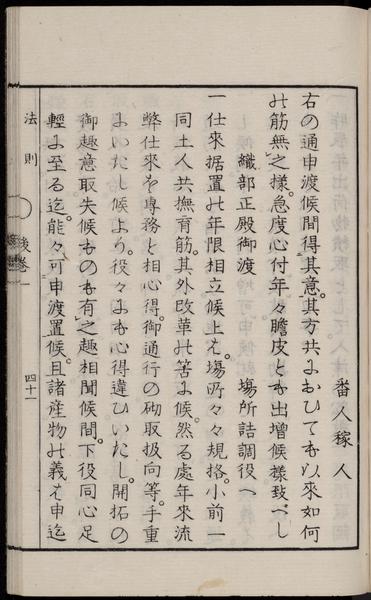 番人稼人
右の通申渡候間得其意。其方共よおひても以来如何
の筋無之様。急度心付年々膽皮とも出増候様致べし
織部正殿御渡　場所詰調役へ
一仕来据置の年限相立候上は。塲所々々規格。小前一
同土人共撫育筋。其外改革の筈に候。然る處年来流
弊仕来を專務と相心得。御通行の砌取扱向等。手重
よいたし候より。役々よも心得違ひいたし。開拓の
御趣意取失候ものも有之趣相聞候間。下役同心足
輕よ至る迄。能々可申渡置候。且諸産物の義は申迄
法則
後巻
四十一